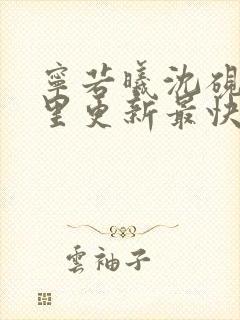 寧若曦沈硯
里更新最快
雲袖子